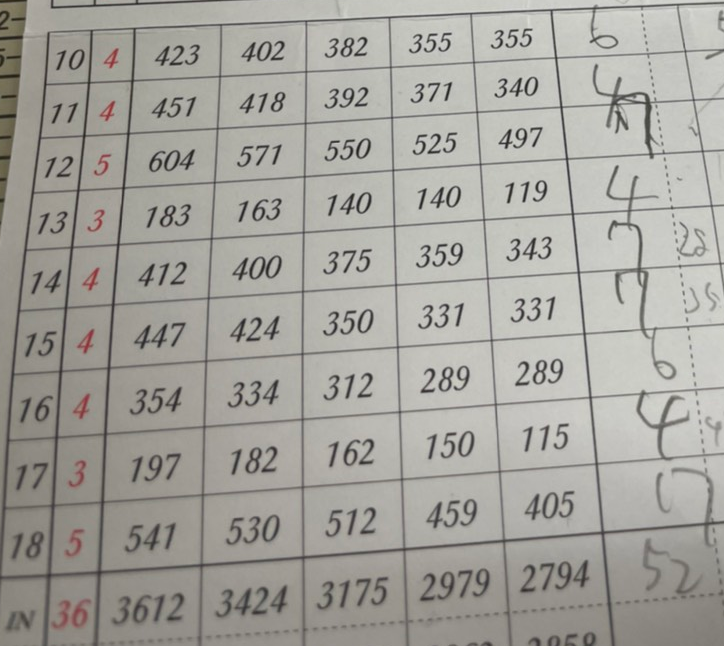 10 4 423 402 382 355 355 6
11 4 451 418 392 371 340 4
12 5 604 571 550 525 497 7
13 3 183 163 140 140 119 4
14 4 412 400 375 359 343 7
15 4 447 424 350 331 331 7
16 4 354 334 312 289 289 6
17 3 197 182 162 150 115 4
18 5 541 530 512 459 405 7
IN 36 3612 3424 3175 2979 2794 52